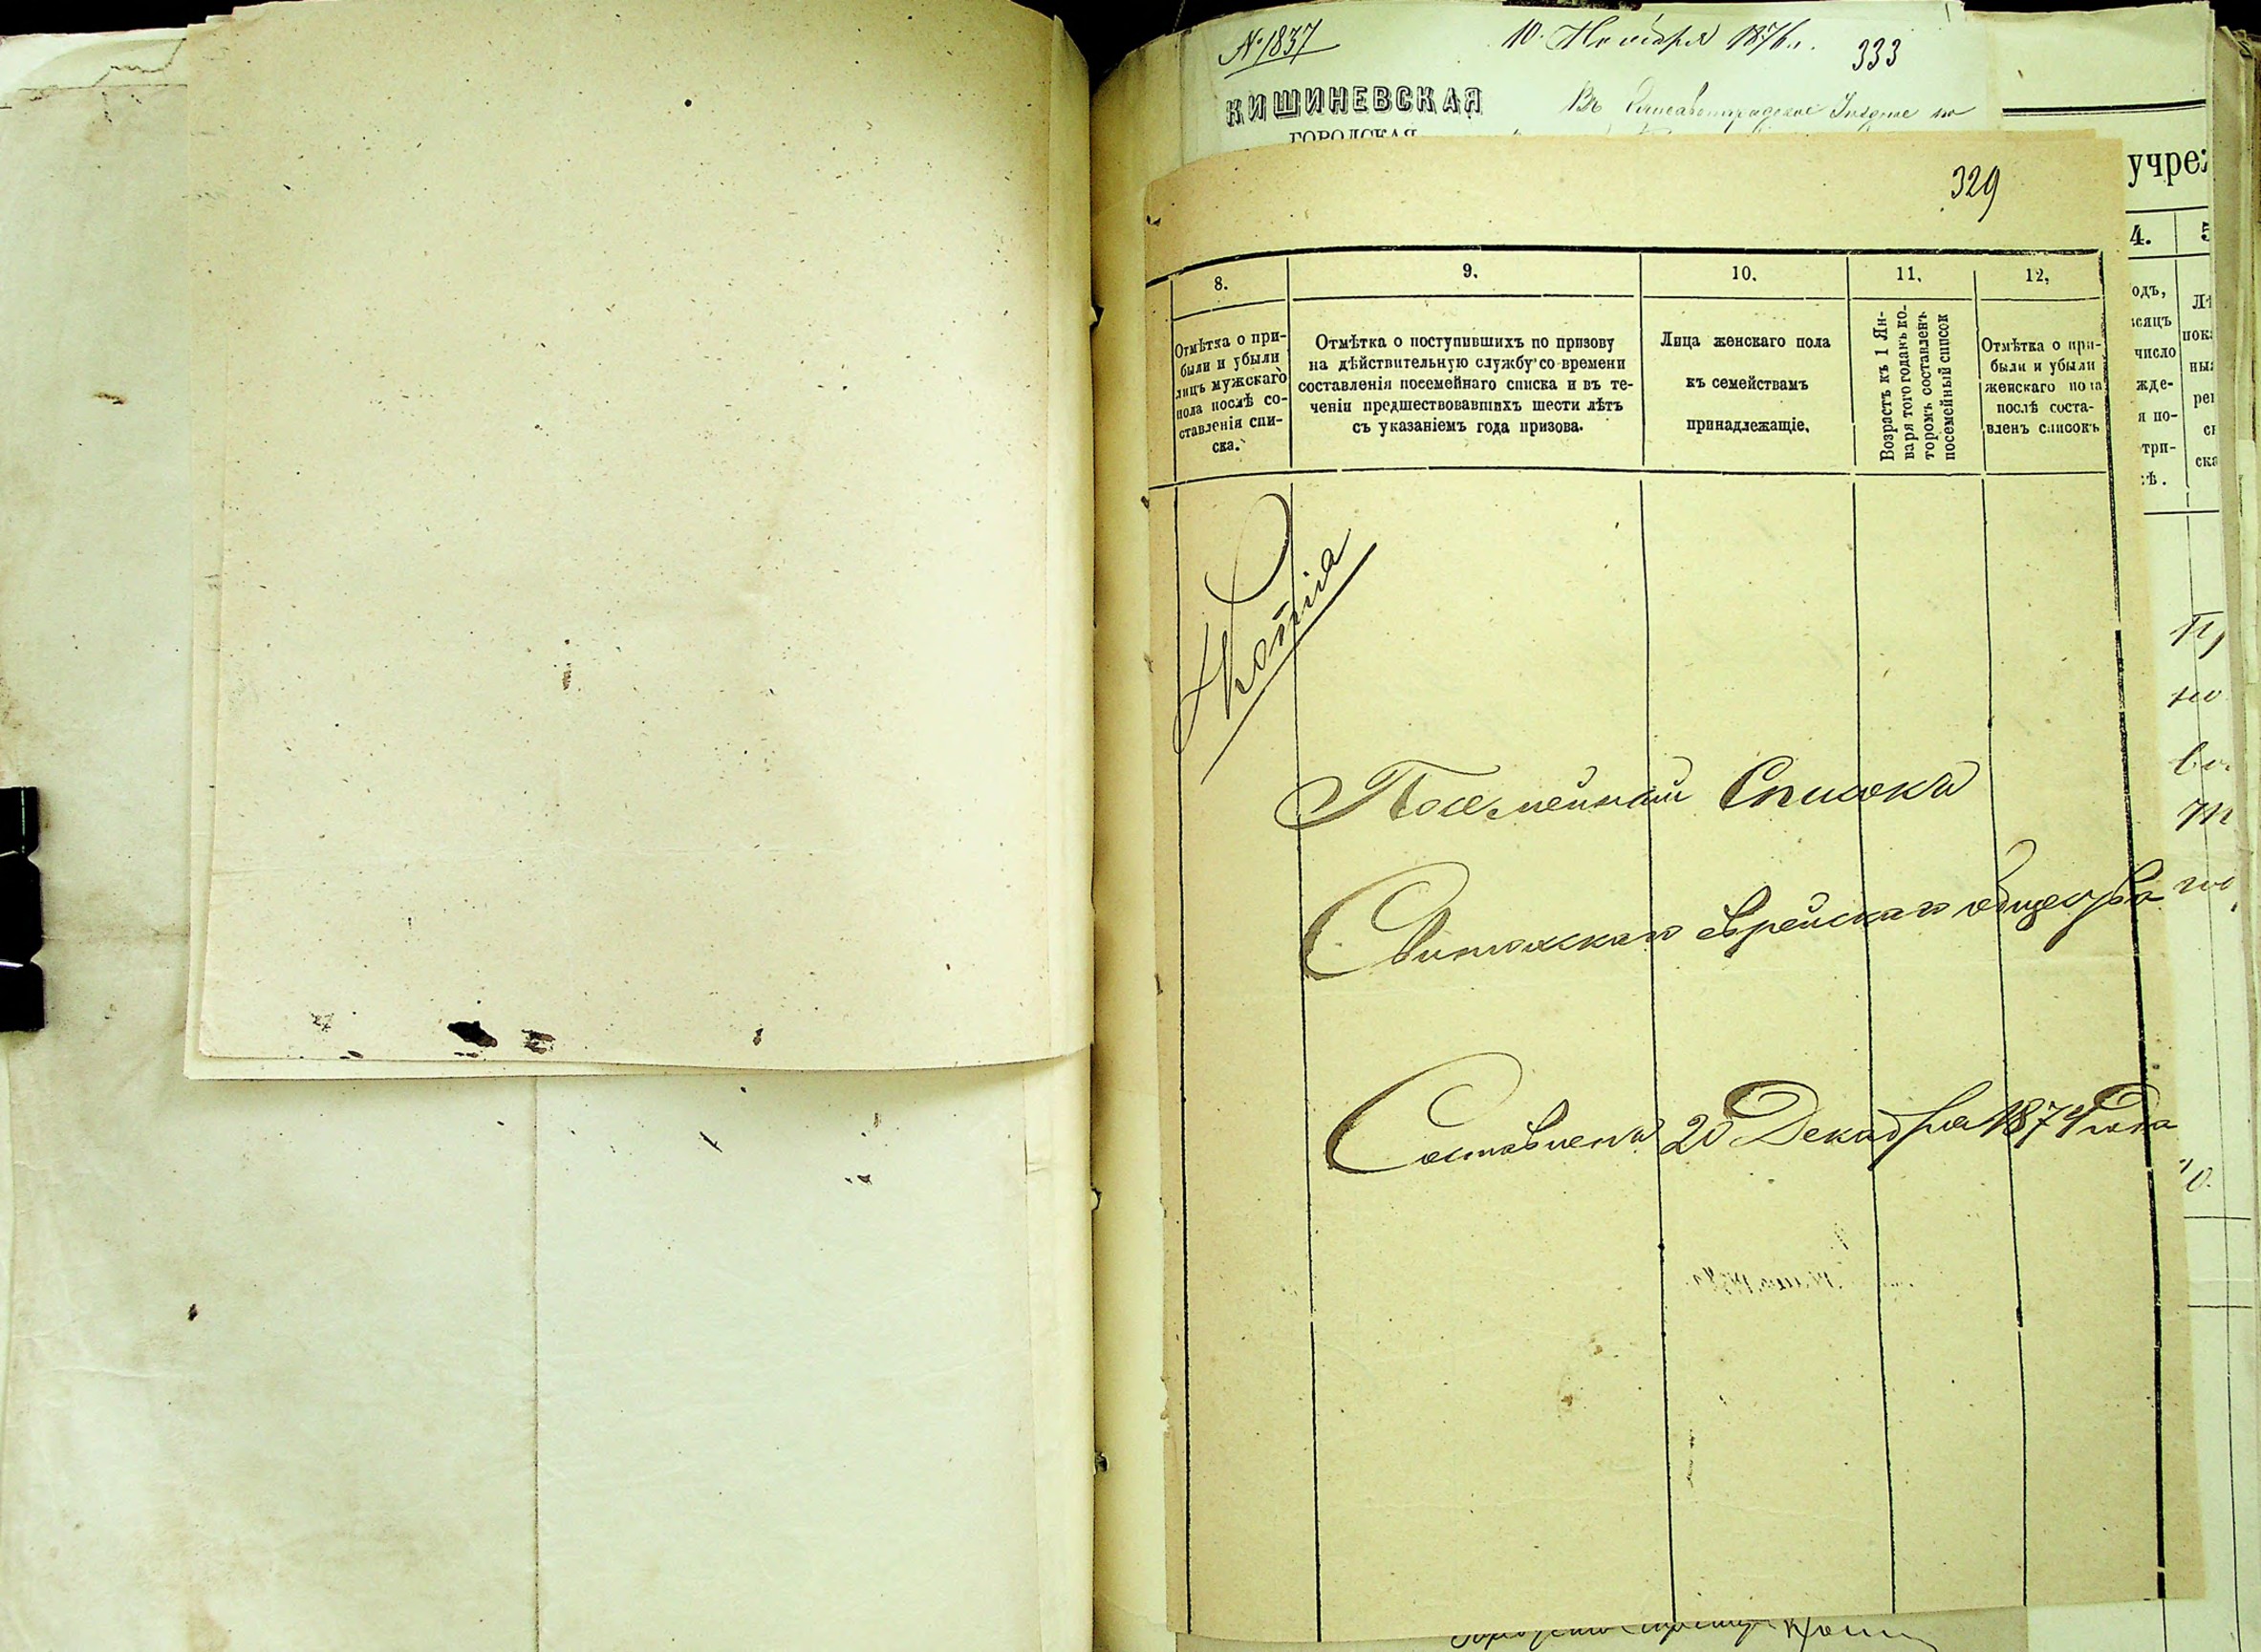 № 1837
10. Ноября 1876 г.
333
КИШИНЕВСКАЯ
Въ Елисаветградское Уѣздное по
ГОРОДСКАЯ
329
учре
4.
5
8.
9.
10.
11.
12.
Отмѣтка о при-
были и убыли
лицъ мужскаго
пола послѣ со-
ставленія спи-
ска.
Отмѣтка о поступившихъ по призову
на дѣйствительную службу со времени
составленія посемейнаго списка и въ те-
ченіи предшествовавшихъ шести лѣтъ
съ указаніемъ года призова.
Лица женскаго пола
къ семействамъ
принадлежащіе.
Возрастъ къ 1 Ян-
варя того года въ ко-
торомъ составленъ
посемейный список
Отмѣтка о при-
были и убыли
женскаго пола
послѣ соста-
вленъ списокъ
одъ,
ѣсяцъ
число
жде-
я по-
три-
Копія
Посемейный Списокъ
еврейскаго общества
Составленъ 20 Декабря 1874 года